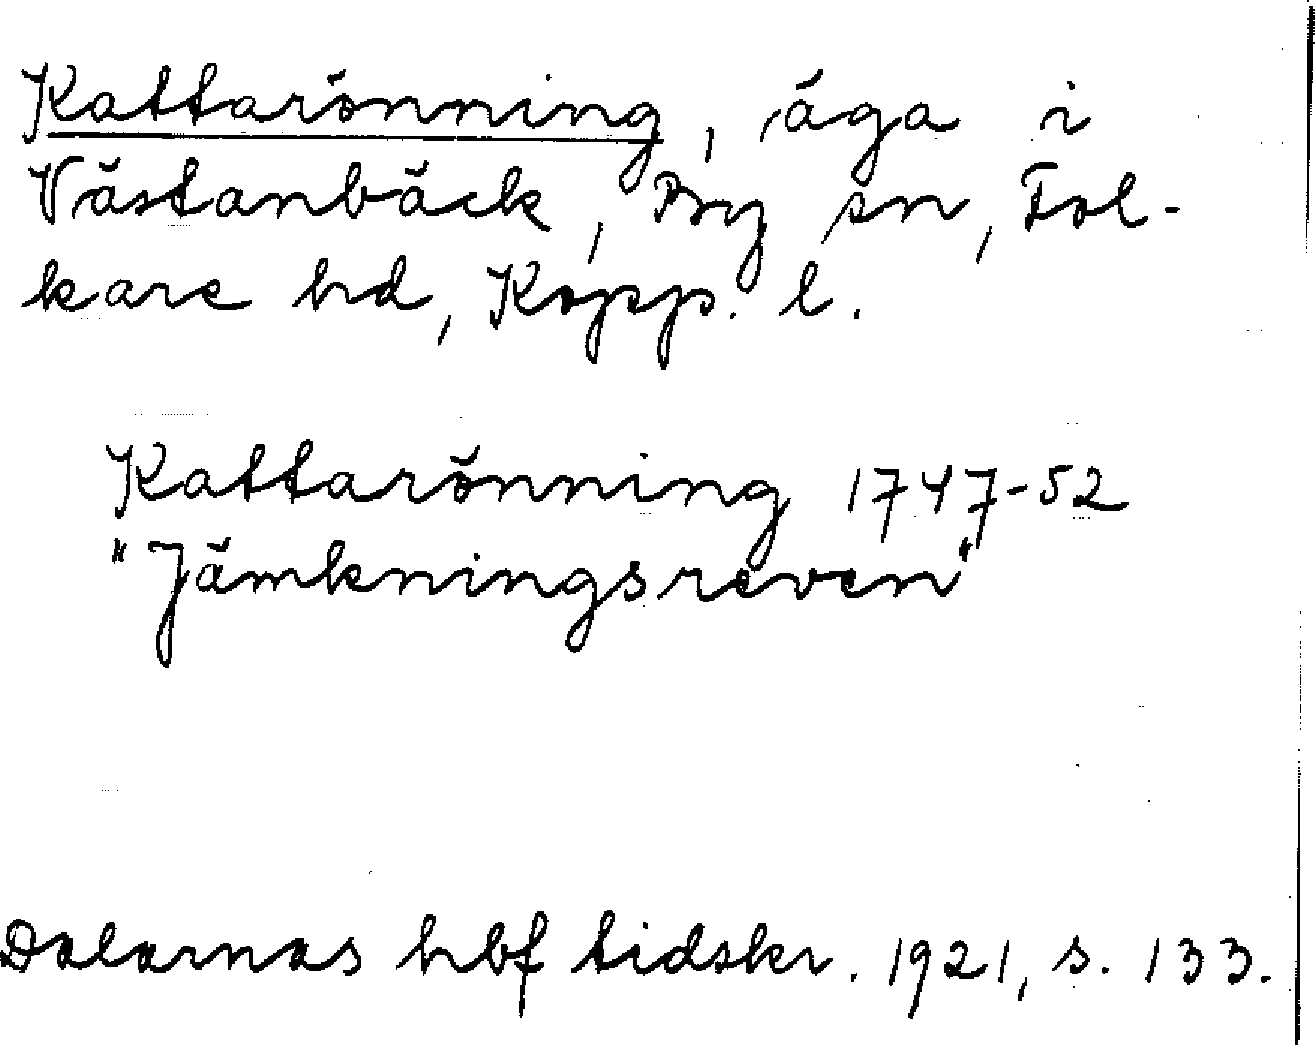 Kattarönning, äga i
Västanbäck, By sn, Fol-
kare hd, Kopp. l.
Kattarönning 1747-52
"Jämkningsreven"
Dalarnas hbf tidskr. 1921, s. 133.